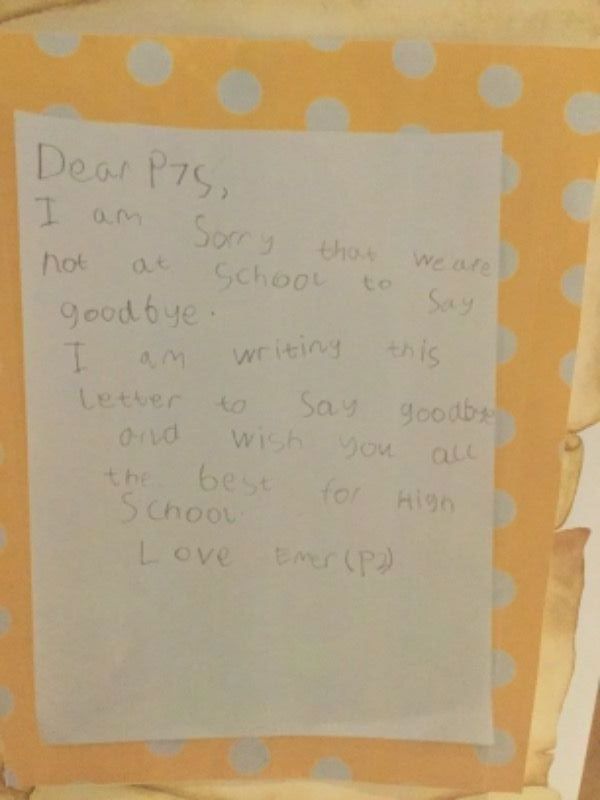 Dear P7s,
I am Sorry that we are
not at School to Say
goodbye.
I am writing this
Letter to Say goodbye
and wish you all
the best for High
School.
Love Emer (P2)